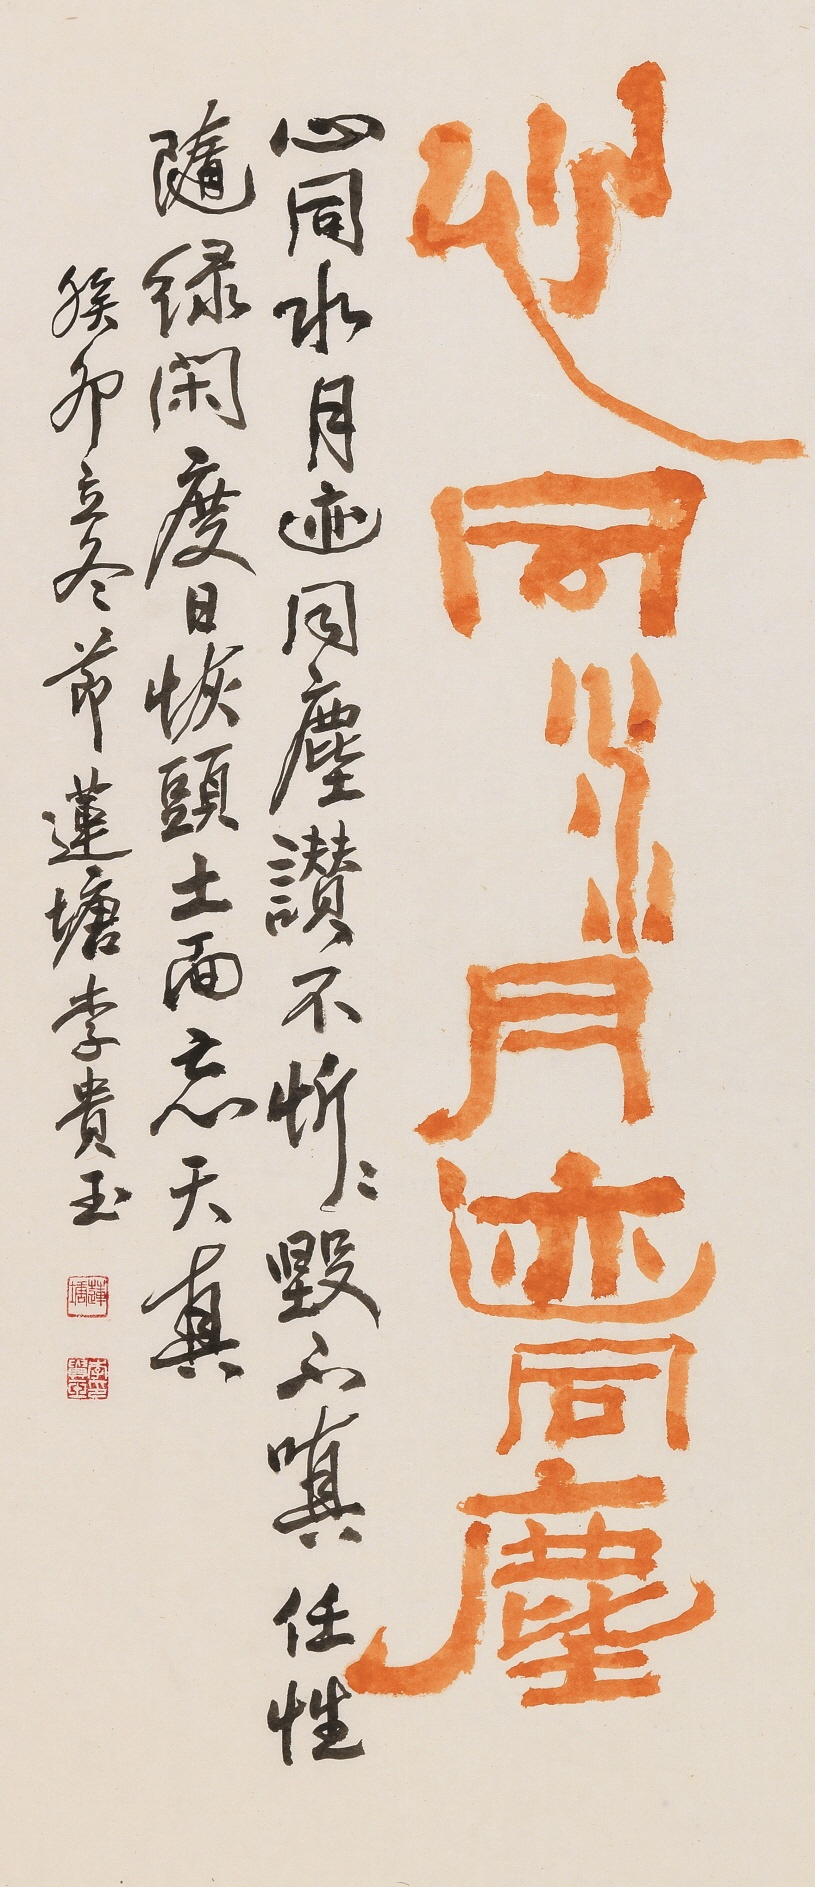 心同水月迹同塵
心同水月迹同塵讃不忻〻毀不嗔任性
随緑閑度日恢頭土面忘天真
癸卯立冬節蓮塘李貴玉
蓮塘